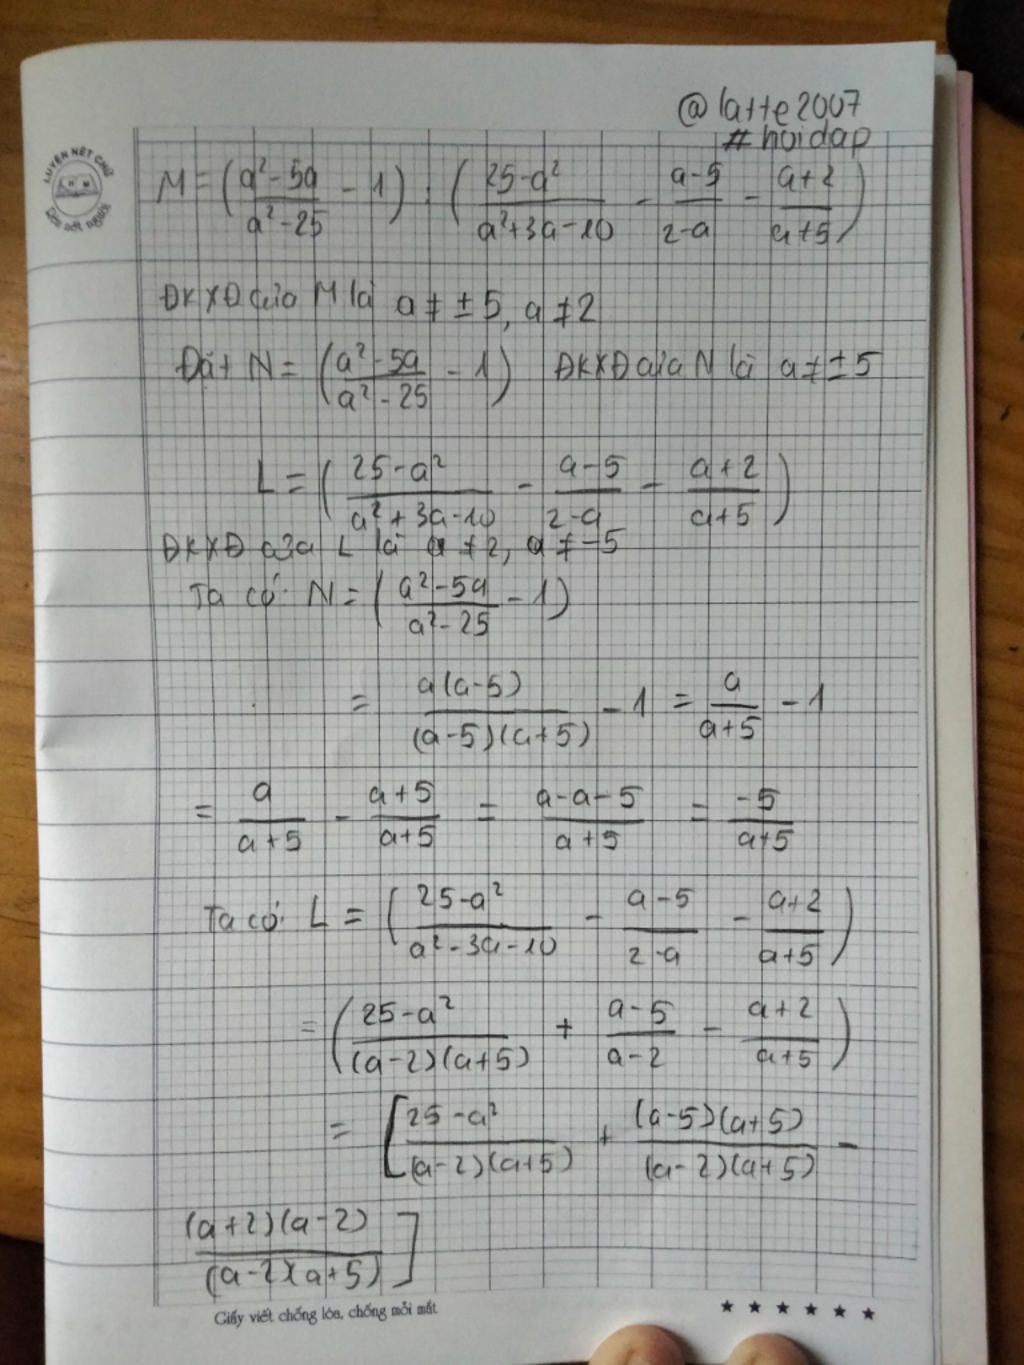 @latte2007
#hoidap
LUYỆN NÉT CHỮ
Rèn nết người
M = (a²-5a / a²-25 - 1) : (25-a² / a²+3a-10 - a-5 / 2-a - a+2 / a+5)
ĐKXĐ của M là a ≠ ± 5, a ≠ 2
Đặt N = (a²-5a / a²-25 - 1) ĐKXĐ của N là a ≠ ± 5
L = (25-a² / a²+3a-10 - a-5 / 2-a - a+2 / a+5)
ĐKXĐ của L là a ≠ 2, a ≠ -5
Ta có: N = (a²-5a / a²-25 - 1)
= a(a-5) / (a-5)(a+5) - 1 = a / a+5 - 1
= a / a+5 - a+5 / a+5 = a-a-5 / a+5 = -5 / a+5
Ta có: L = (25-a² / a²-3a-10 - a-5 / 2-a - a+2 / a+5)
= (25-a² / (a-2)(a+5) + a-5 / a-2 - a+2 / a+5)
= [25-a² / (a-2)(a+5) + (a-5)(a+5) / (a-2)(a+5) -
(a+2)(a-2) / (a-2)(a+5)]
Giấy viết chống lóa, chống mỏi mắt ★ ★ ★ ★ ★ ★